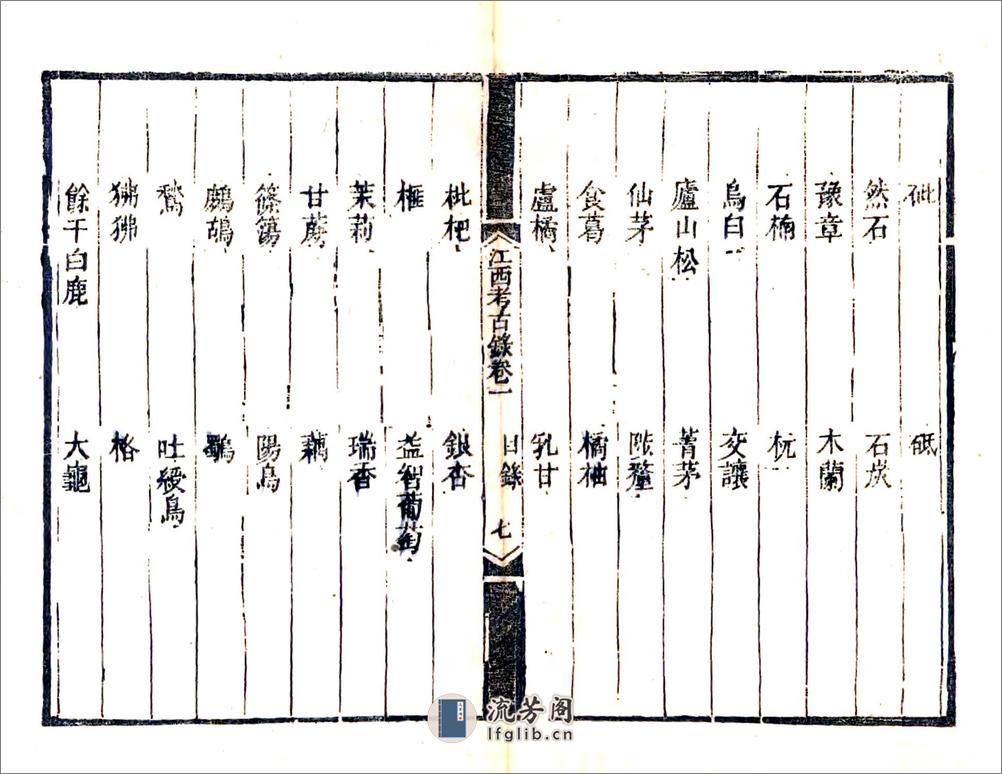 砒 砥
然石 石炭
豫章 木蘭
石楠 杬
烏臼 交讓
廬山松 菁茅
仙茅 陟釐
食葛 橘柚
盧橘 乳甘
江西考古錄卷一 目錄 七
枇杷 銀杏
榧 益智葡萄
茉莉 瑞香
甘蔗 藕
篠簜 陽鳥
鷓鴣 鸜
鶖 吐綬鳥
狒狒 狢
餘干白鹿 大龜
流芳阁
lfglib.cn